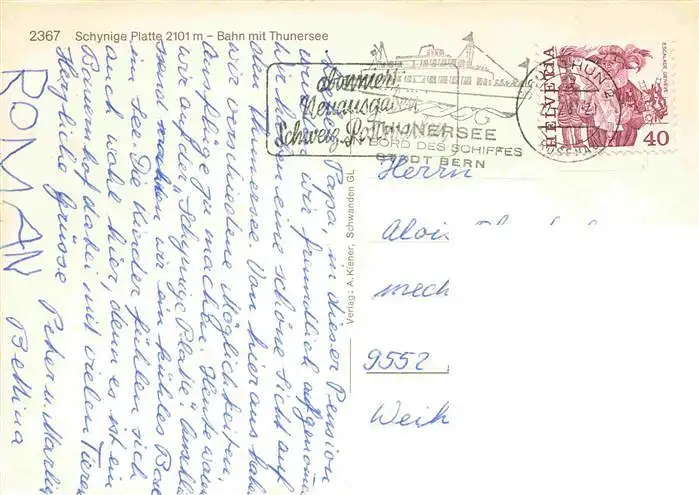 2367 Schynige Platte 2101 m – Bahn mit Thunersee
Papa, in dieser Pension
wir freundlich aufgenom
wir haben eine schöne Sicht auf
den Thunersee. Von hier aus habe
wir verschiedene Möglichkeiten,
Ausflüge zu machen. Heute ware
wir auf der "Schynige Platte".
sand machen wir ein kühles Bad
im See. Die Kinder fühlen sich
auch wohl hier, denn es ist ein
Bauernhof dabei mit vielen Tieren
Herzliche Grüsse Peter u.
Bettina
ROMAN
Verlag: A. Kiener, Schwanden GL
Abonniert
Neuausgaben
Schweiz.
THUNERSEE
BORD DES SCHIFFES
STADT BERN
THUN 2
HELVETIA
ESCALADE GENÈVE
40
Herrn
Alois
mech
9552
Weih